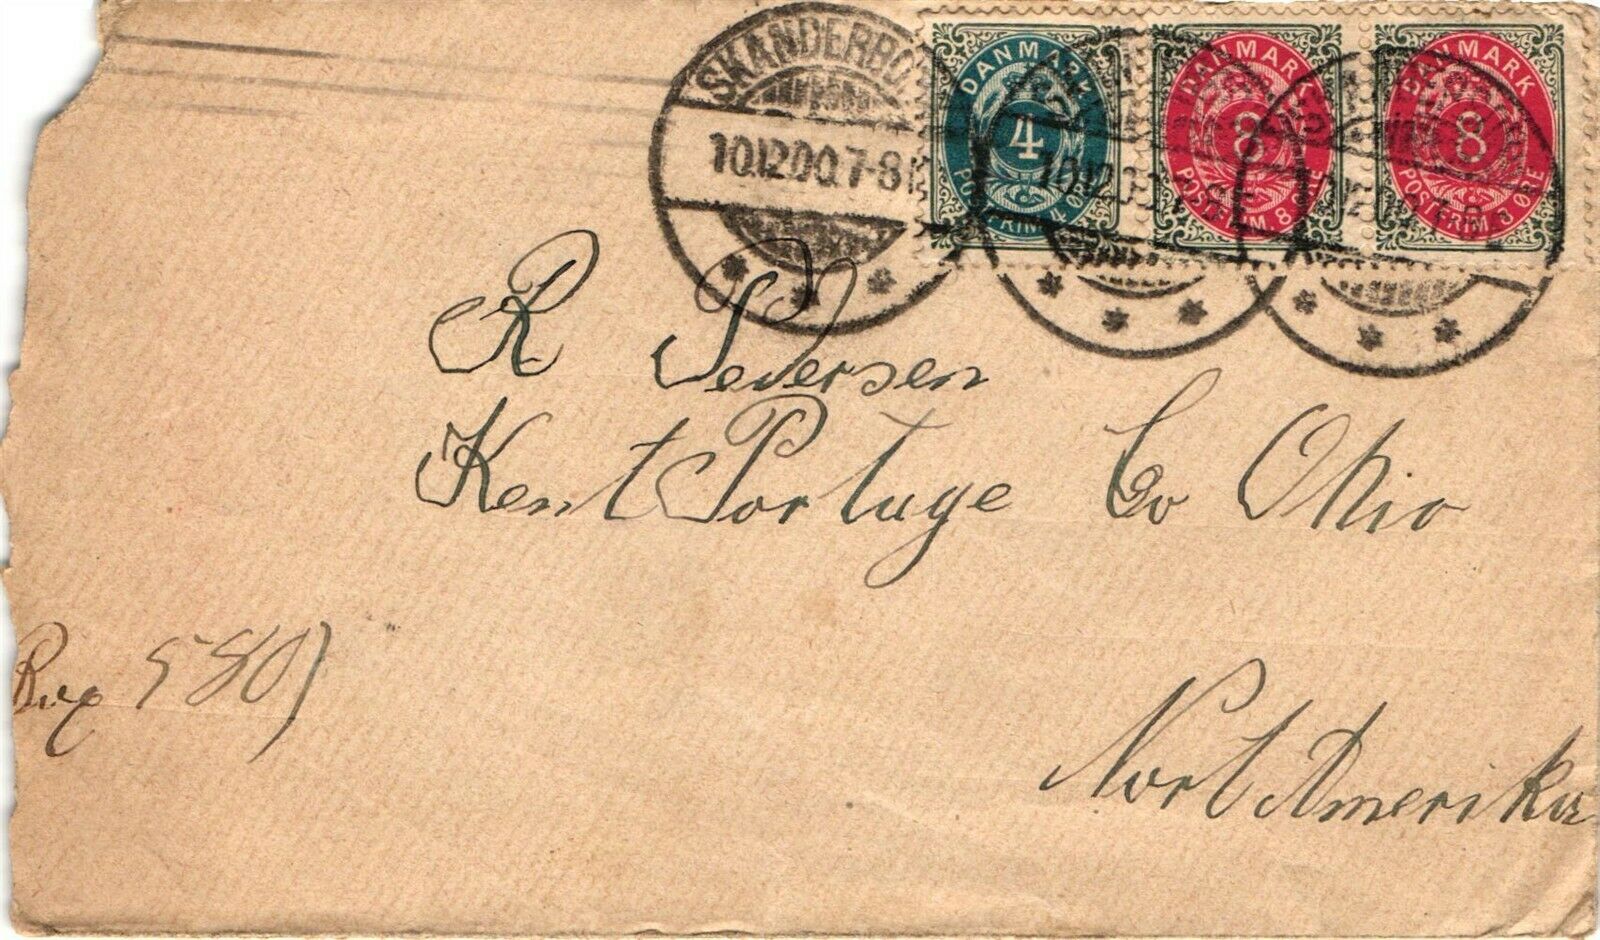 SKANDERBO
10.12.00.7-8
DANMARK
4
POSTFRIM. 4 ØRE
DANMARK
8
POSTFRIM. 8
DANMARK
8
POSTFRIM. 8 ØRE
R Pedersen
Kent Portuge Co Ohio
Box 580)
Nort Amerika